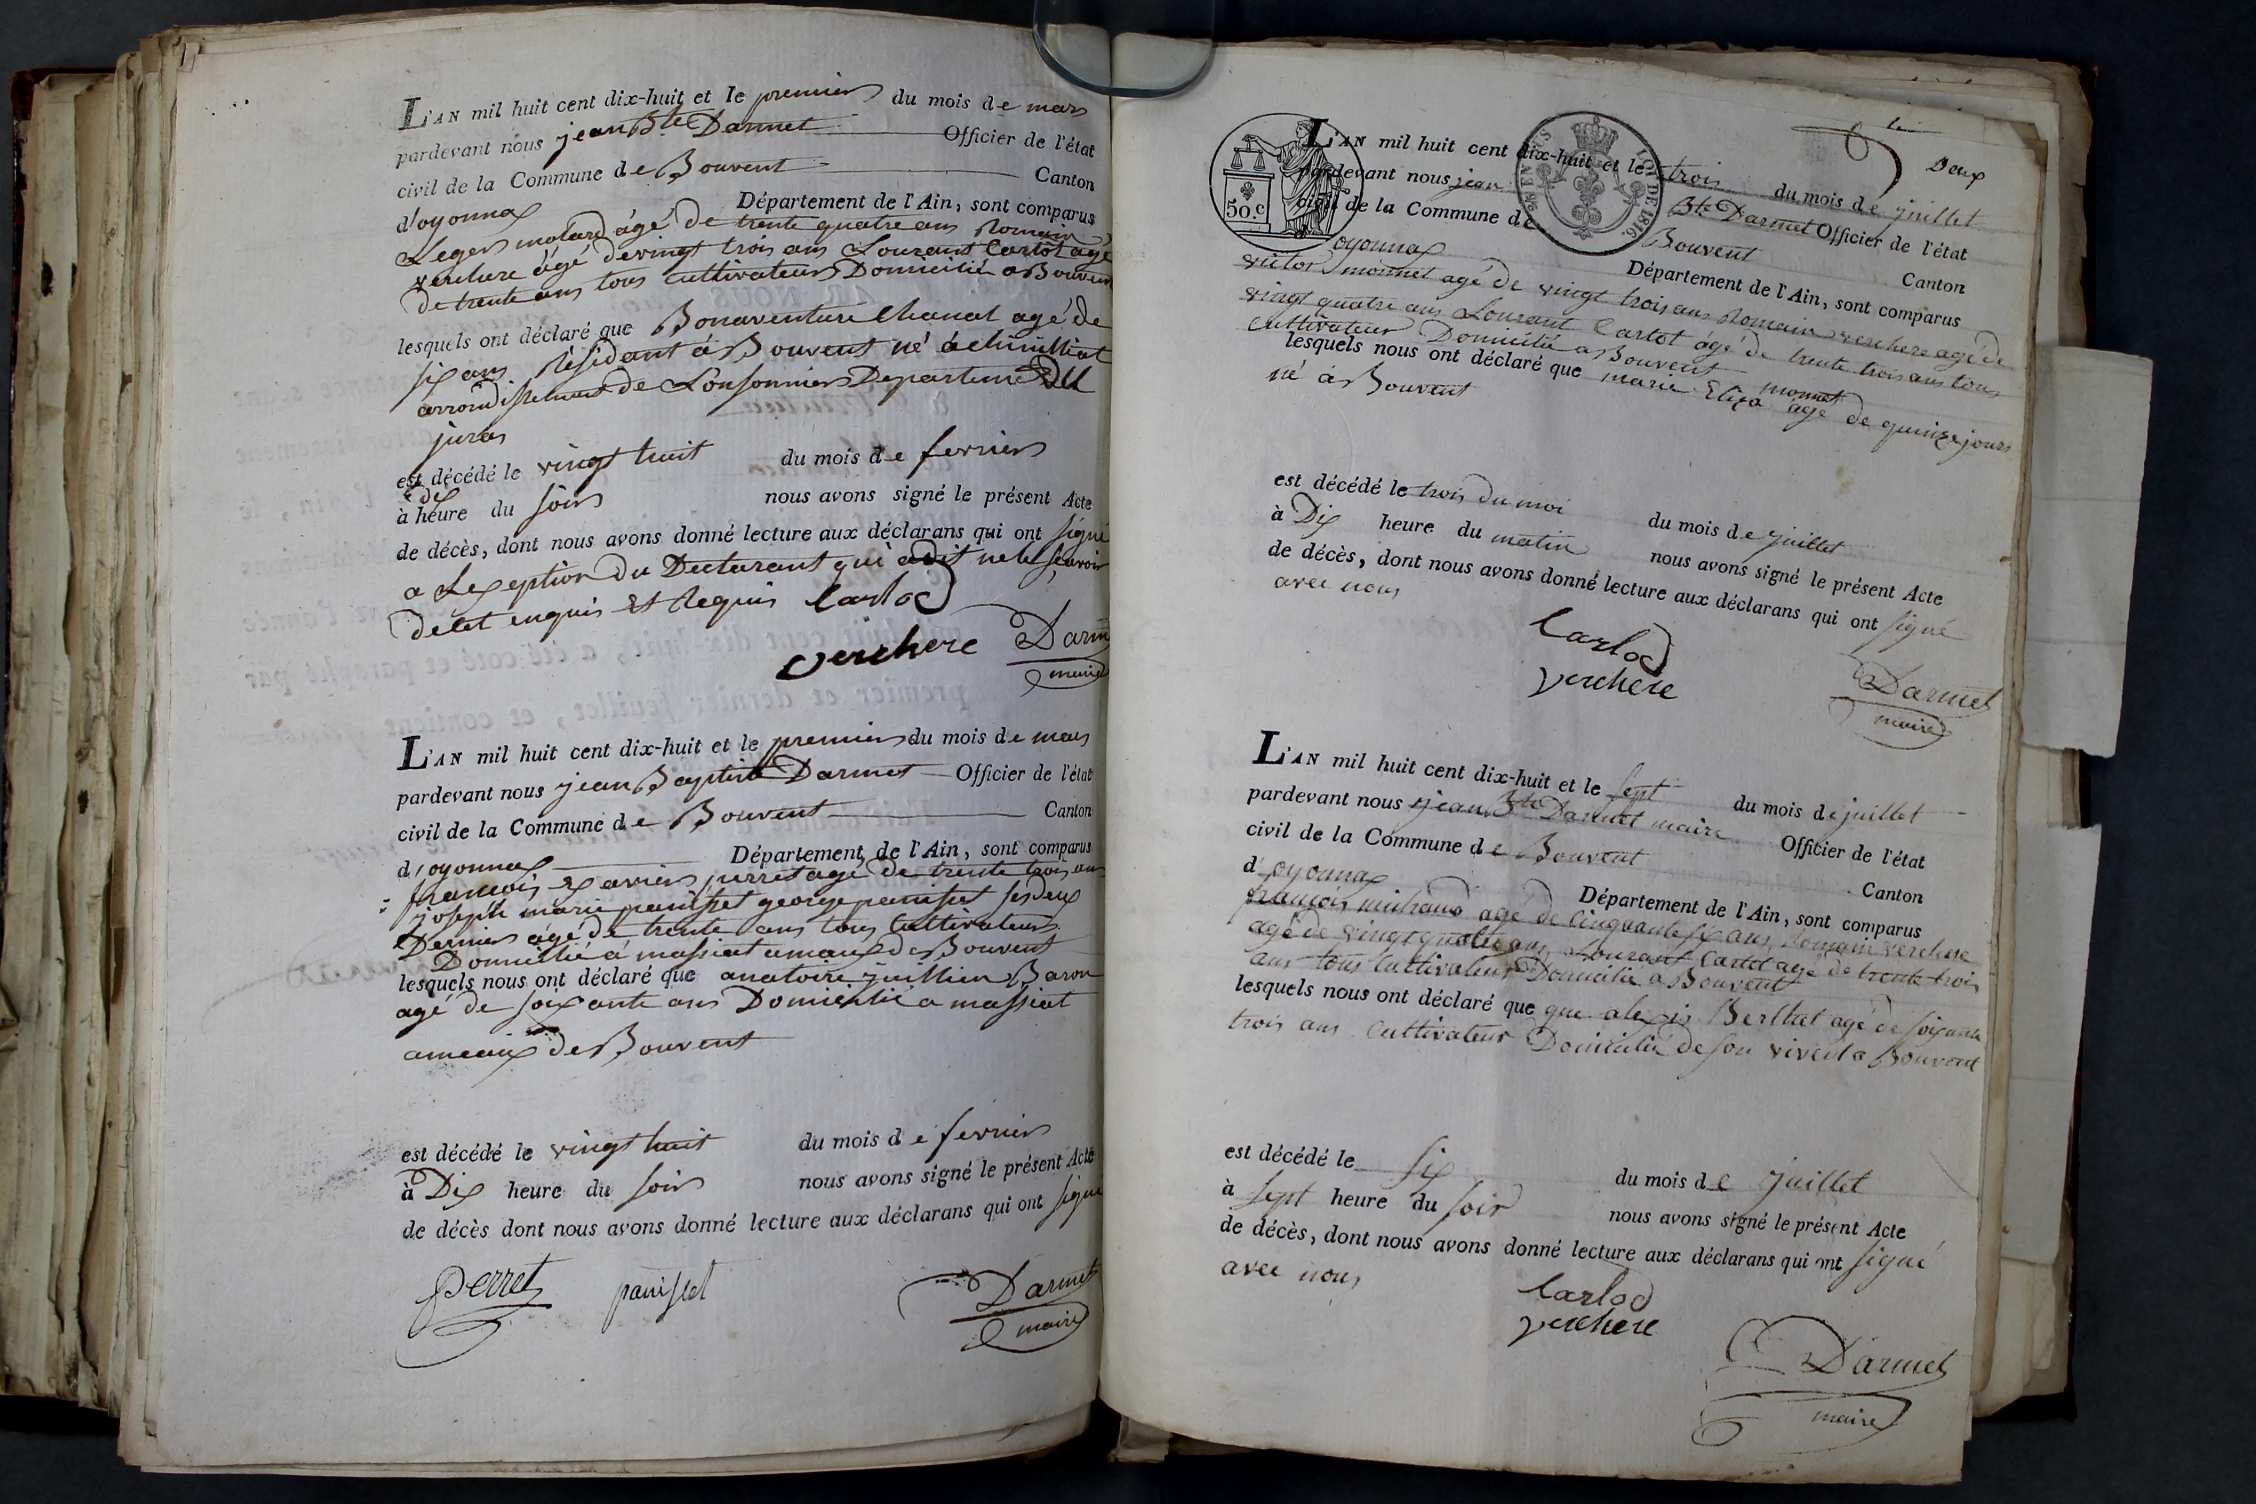 L'AN mil huit cent dix-huit et le premier du mois de mars
pardevant nous jean Bte Darmet Officier de l'état
civil de la Commune de Bouvent Canton
d'oyonnax Département de l'Ain, sont comparus
Leger molard agé de trente quatre ans Romain
verchere agé de vingt trois ans Lourant Carlot agé
de trente ans tous cultivateurs Domicilié a Bouvent
lesquels ont déclaré que Bonaventure Chanal agé de
six ans Résidant à Bouvent né à
arrondissement de Lonsonnier Departement du
jura
est décédé le vingt huit du mois de fevrier
à dix heure du soir nous avons signé le présent Acte
de décès, dont nous avons donné lecture aux déclarans qui ont signé
a Lexception du Declarant qui a dit ne le scavoir
de cet enquis Et Requis Carlod
verchere Darmet
maire
L'AN mil huit cent dix-huit et le premier du mois de mars
pardevant nous jean Baptiste Darmet Officier de l'état
civil de la Commune de Bouvent Canton
d'oyonnax Département de l'Ain, sont comparus
francois Xavier perret agé de trente trois ans
joseph marie panisset george panisset ses deux
Dernier agé de trente ans tous Cultivateurs
Domicilié à massiat amaux de Bouvent
lesquels nous ont déclaré que anatoire juillien Baron
agé de soixante ans Domicilié a massiat
ameaix de Bouvent
est décédé le vingt huit du mois de fevrier
à Dix heure du soir nous avons signé le présent Acte
de décès dont nous avons donné lecture aux déclarans qui ont signé
Perret panisset Darmet
maire
Deux
50. c
LOI DE 1816.
L'AN mil huit cent dix-huit et le trois du mois de juillet
pardevant nous jean Bte Darmet Officier de l'état
civil de la Commune de Bouvent Canton
d'oyonnax Département de l'Ain, sont comparus
victor monnet agé de vingt trois ans Romain verchere agé de
vingt quatre ans Lourant Carlot agé de trente trois ans tous
Cultivateur Domicilié a Bouvent
monnet
lesquels nous ont déclaré que marie Eliza agé de quinze jours
né à Bouvent
est décédé le trois du moi du mois de juillet
à Dix heure du matin nous avons signé le présent Acte
de décès, dont nous avons donné lecture aux déclarans qui ont signé
avec nous
Carlod
verchere Darmet
maire
L'AN mil huit cent dix-huit et le sept du mois de juillet
pardevant nous jean Bte Darmet maire Officier de l'état
civil de la Commune de Bouvent Canton
d'oyonnax Département de l'Ain, sont comparus
françois michaud agé de Cinquante six ans, Romain verchere
agé de vingt quatre ans Lourant Carlot agé de trente trois
ans tous Cultivateur Domicilié a Bouvent
lesquels nous ont déclaré que que alexis Berthet agé de soixante
trois ans Cultivateur Domicilié de son vivent a Bouvent
est décédé le six du mois de juillet
à sept heure du soir nous avons signé le présent Acte
de décès, dont nous avons donné lecture aux déclarans qui ont signé
avec nous
Carlod
verchere
Darmet
maire